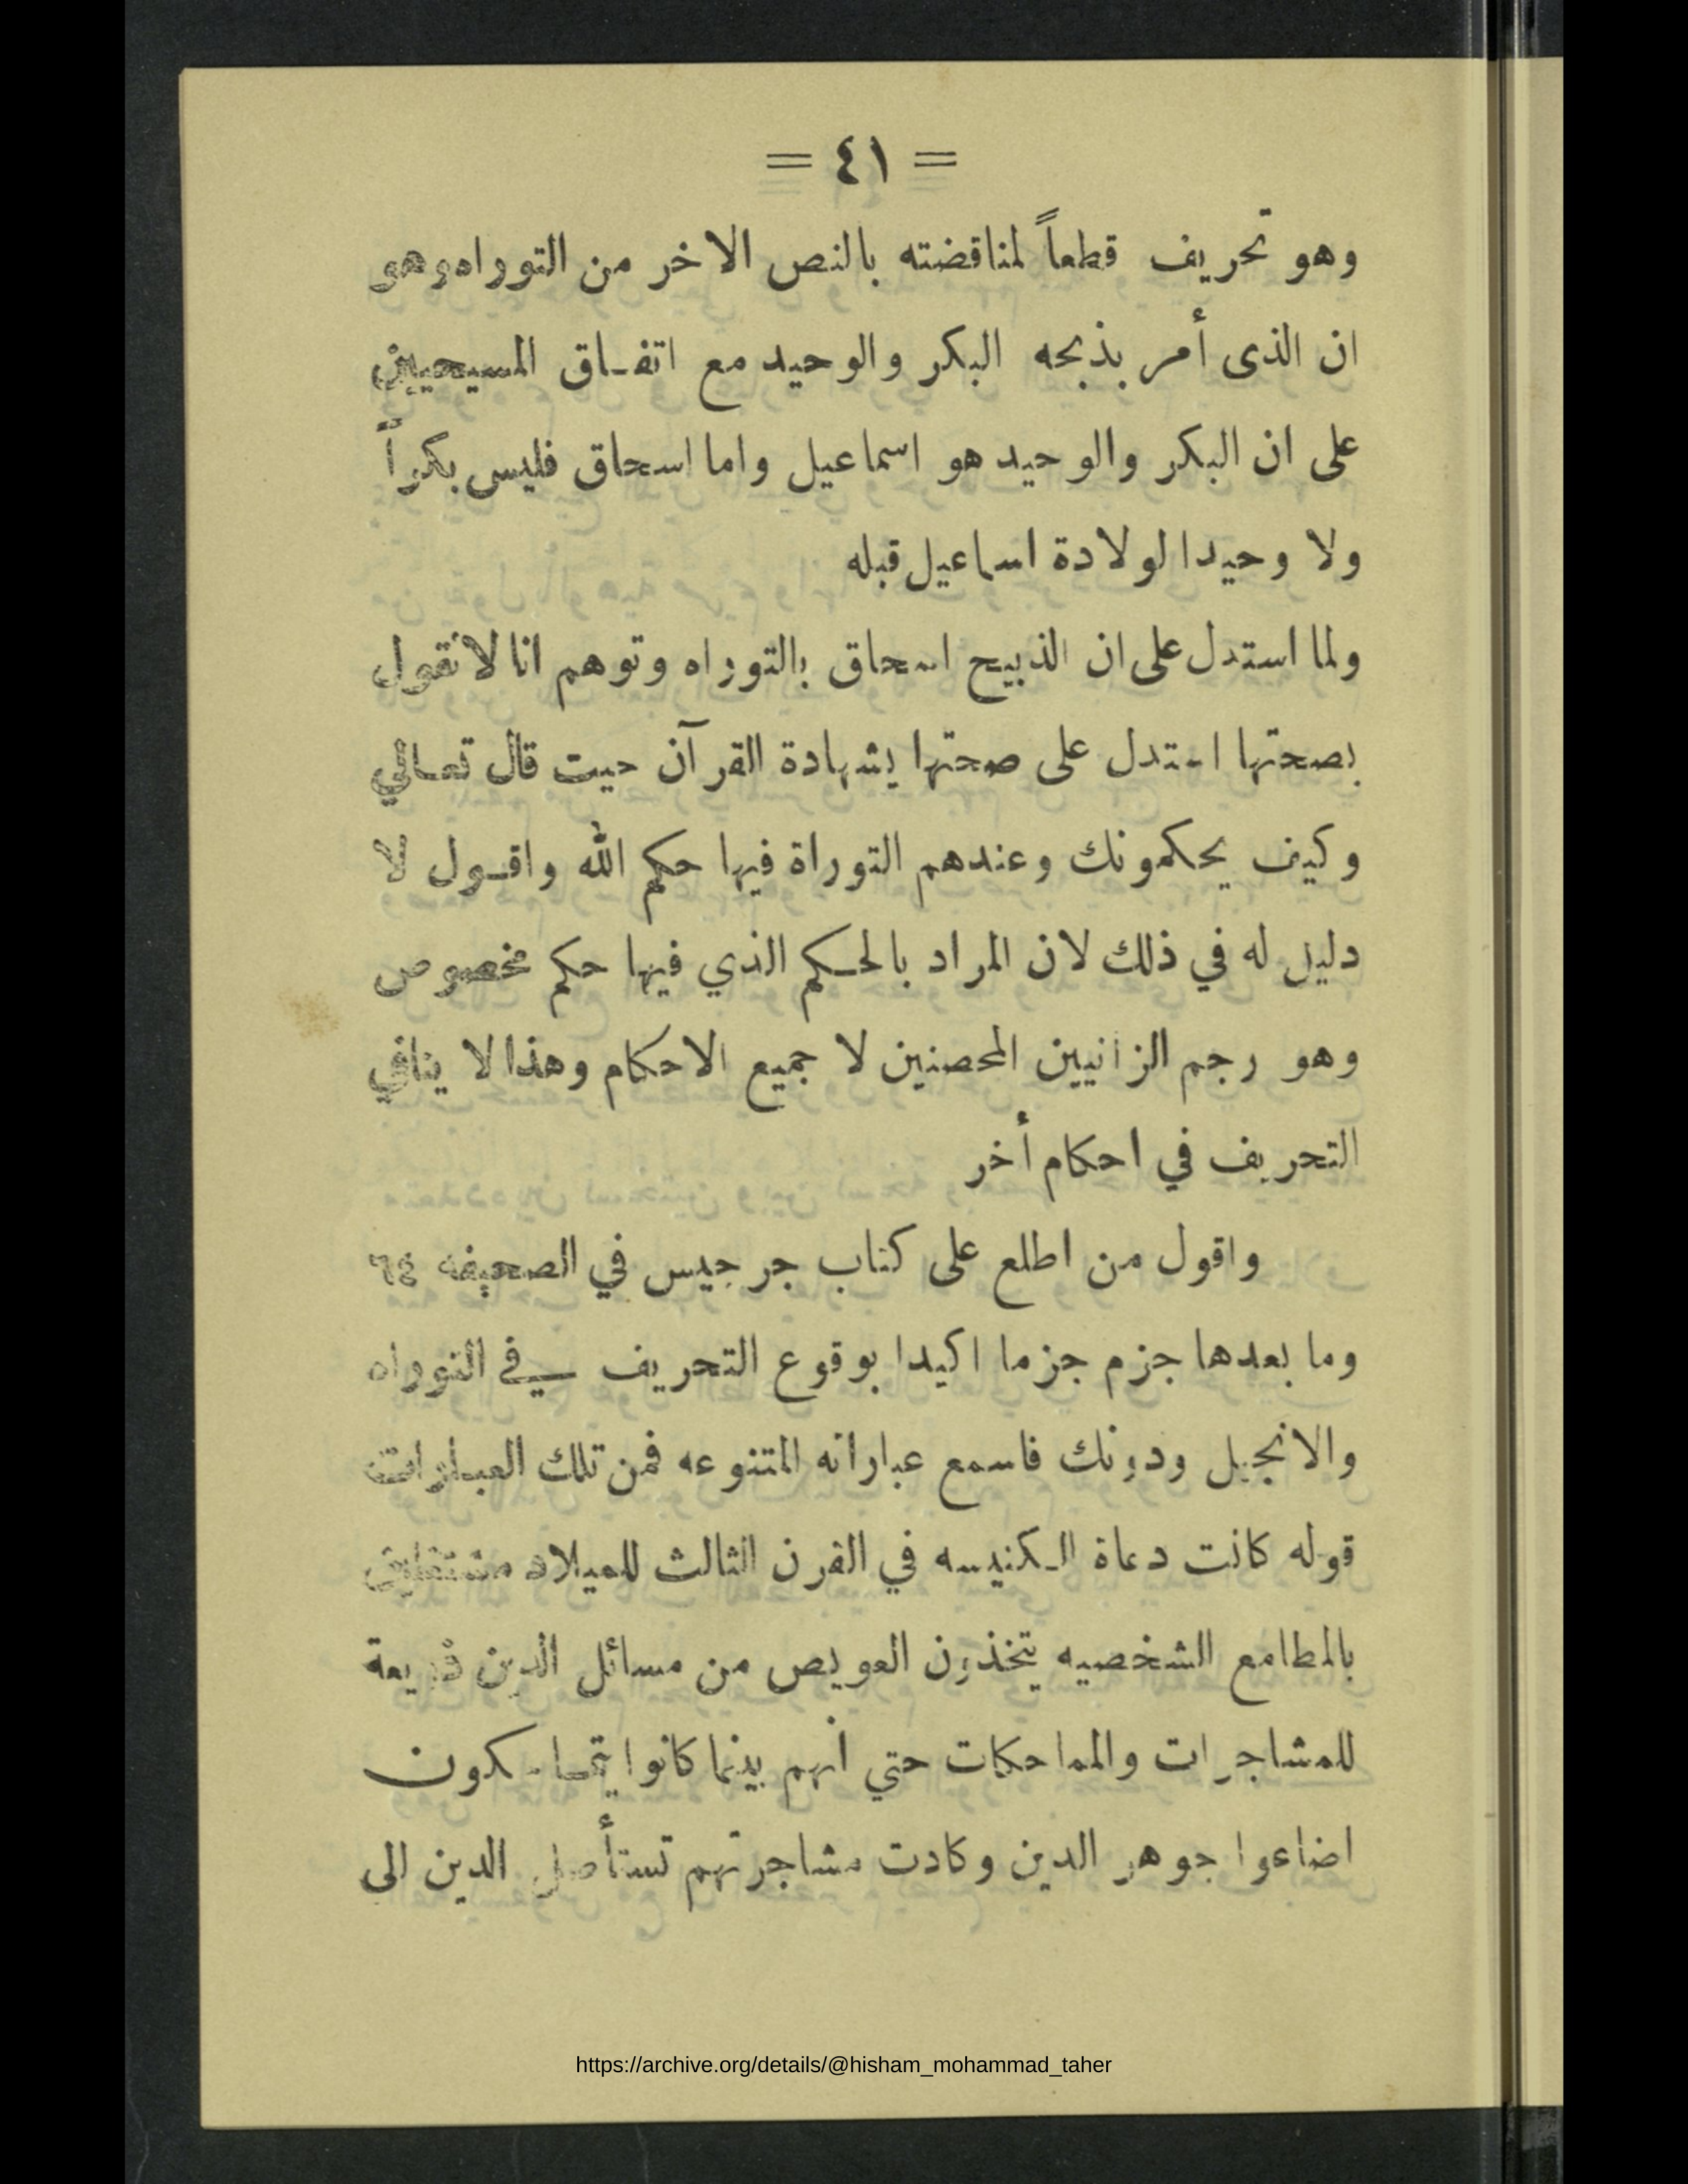 = ٤١ =
وهو تحريف قطعاً لمناقضته بالنص الاخر من التوراه وهو
ان الذى أمر بذبحه البكر والوحيد مع اتفـاق المسيحيين
على ان البكر والوحيد هو اسماعيل واما اسحاق فليس بكراً
ولا وحيدا لولادة اسماعيل قبله
ولما استدل على ان الذبيح اسحاق بالتوراه وتوهم انا لا نقول
بصحتها استدل على صحتها بشهادة القرآن حيت قال تعـالي
وكيف يحكمونك وعندهم التوراة فيها حكم الله واقـول لا
دليل له في ذلك لان المراد بالحـكم الذي فيها حكم مخصوص
وهو رجم الزانيين المحصنين لا جميع الاحكام وهذا لا ينافي
التحريف في احكام أخر
واقول من اطلع على كتاب جرجيس في الصحيفه ٦٤
وما بعدها جزم جزما اكيدا بوقوع التحريف في التوراه
والانجيل ودونك فاسمع عباراته المتنوعه فمن تلك العبـارات
قوله كانت دعاة الـكنيسه في القرن الثالث للميلاد
بالمطامع الشخصيه يتخذون العويص من مسائل الدين ذريعة
للمشاجرات والمماحكات حتي انهم بينما كانوا يتماحكون
اضاعوا جوهر الدين وكادت مشاجرتهم تستأصل الدين الى
https://archive.org/details/@hisham_mohammad_taher